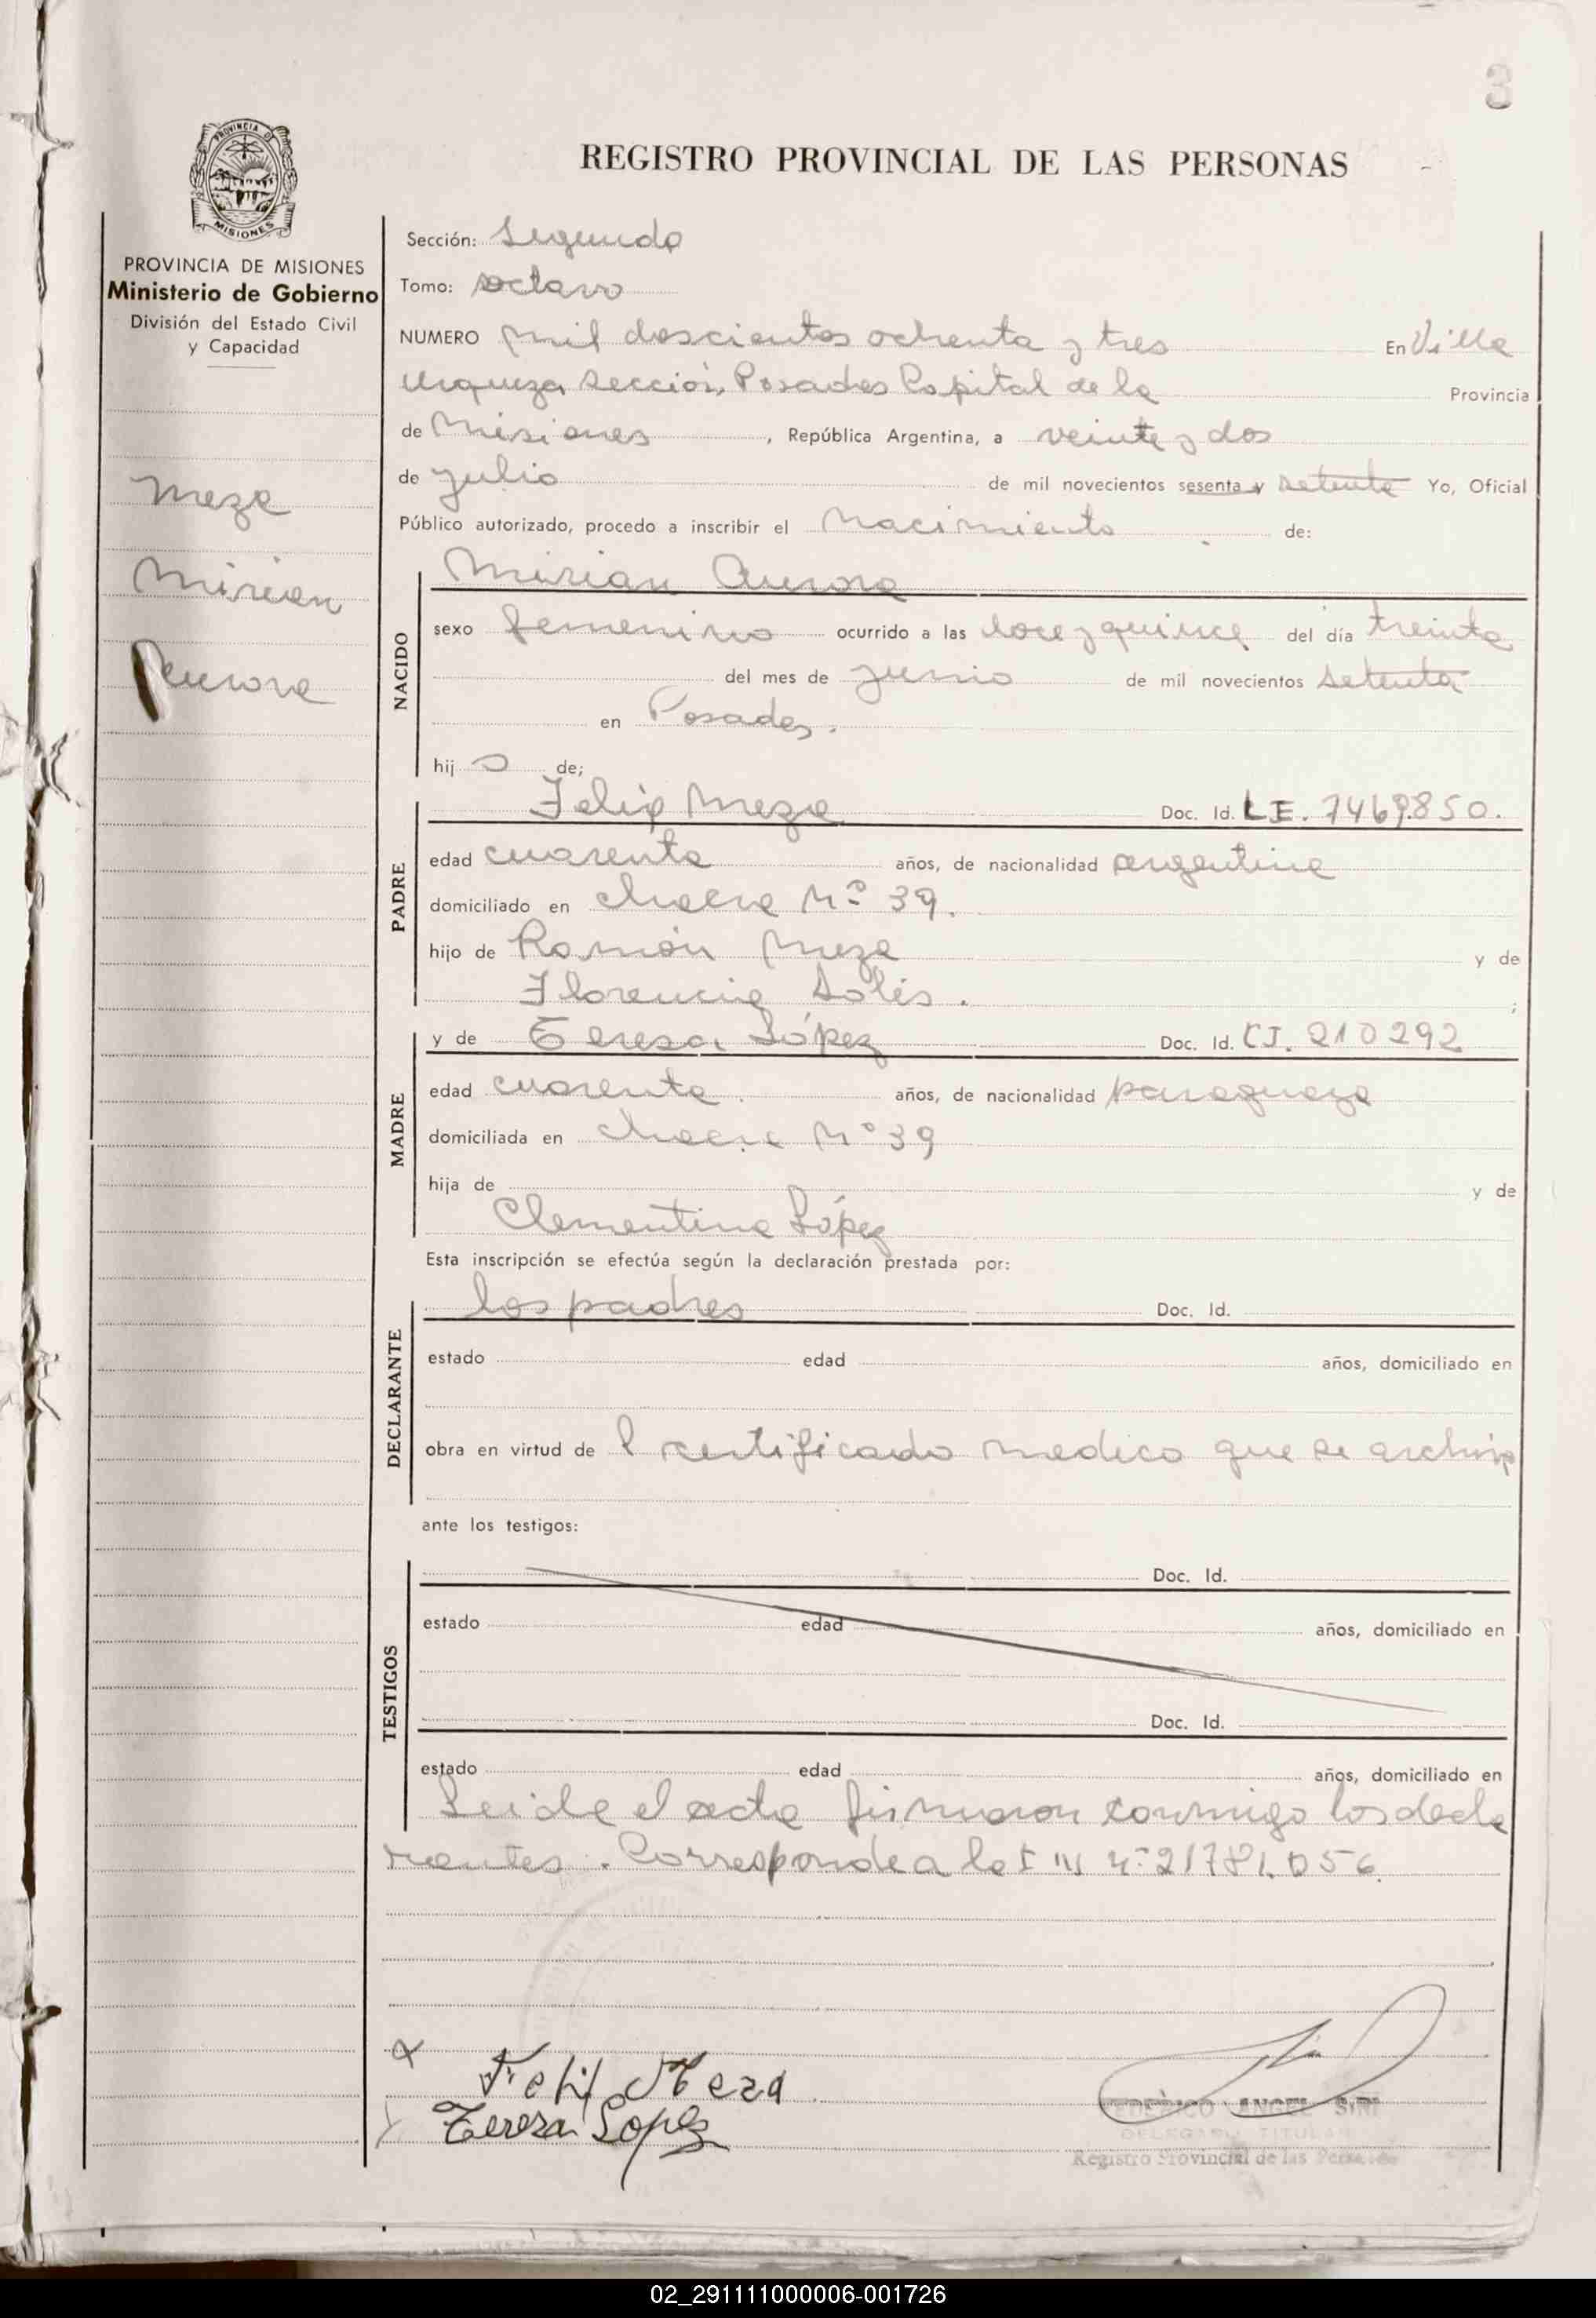 3
REGISTRO PROVINCIAL DE LAS PERSONAS
PROVINCIA DE MISIONES
PROVINCIA DE MISIONES
Ministerio de Gobierno
División del Estado Civil
y Capacidad
Meza
Mirian
Aurora
Sección: Segunda
Tomo: octavo
NUMERO mil doscientos ochenta y tres En Villa
Urquiza, Sección, Posadas Capital de la Provincia
de Misiones, República Argentina, a veinte y dos
de julio de mil novecientos sesenta y setenta Yo, Oficial
Público autorizado, procedo a inscribir el Nacimiento de:
NACIDO
Mirian Aurora
sexo femenino ocurrido a las doce y quince del día treinta
del mes de junio de mil novecientos setenta
en Posadas.
hij a de;
PADRE
Felix Meza Doc. Id. LE. 7469.850.
edad cuarenta años, de nacionalidad argentina
domiciliado en chacra Nº 39.
hijo de Ramón Meza y de
Florencia Solis. ;
MADRE
y de Teresa López Doc. Id. CI. 210292
edad cuarenta. años, de nacionalidad paraguaya
domiciliada en chacra Nº 39
hija de y de
Clementina López
Esta inscripción se efectúa según la declaración prestada por:
DECLARANTE
los padres Doc. Id.
estado edad años, domiciliado en
obra en virtud de l certificado medico que se archiva
ante los testigos:
TESTIGOS
Doc. Id.
estado edad años, domiciliado en
Doc. Id.
estado edad años, domiciliado en
Leida el acta firmaron conmigo los decla
rantes. Corresponde a la I N Nº 21781.056.
Felix Meza
Teresa Lopez
FEDERICO ANGEL SIRI
DELEGADO TITULAR
Registro Provincial de las Personas
02_291111000006-001726